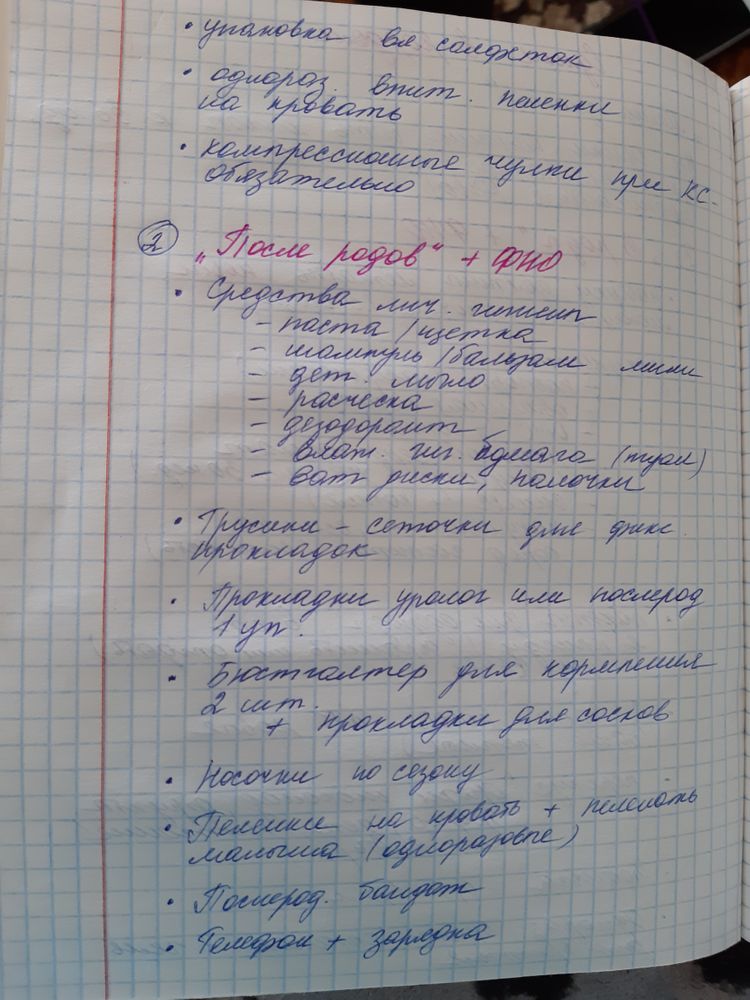 • упаковка вл. салфеток
• однораз. впит. пеленки
на кровать
• компрессионные чулки при КС-
обязательно
2 „После родов“ + ФИО
• Средства лич. гигиен
- паста / щетка
- шампунь / бальзам мини
- дет. мыло
- расческа
- дезодорант
- влаж. гиг. бумага (туал)
- ват диски, палочки
• Трусики - сеточки для фикс.
прокладок
• Прокладки уролог или послерод
1 уп.
• Бюстгалтер для кормления
2 шт.
+ прокладки для сосков
• Носочки по сезону
• Пеленки на кровать + пеленать
малыша (одноразовые)
• Послерод. бандаж
• Телефон + зарядка